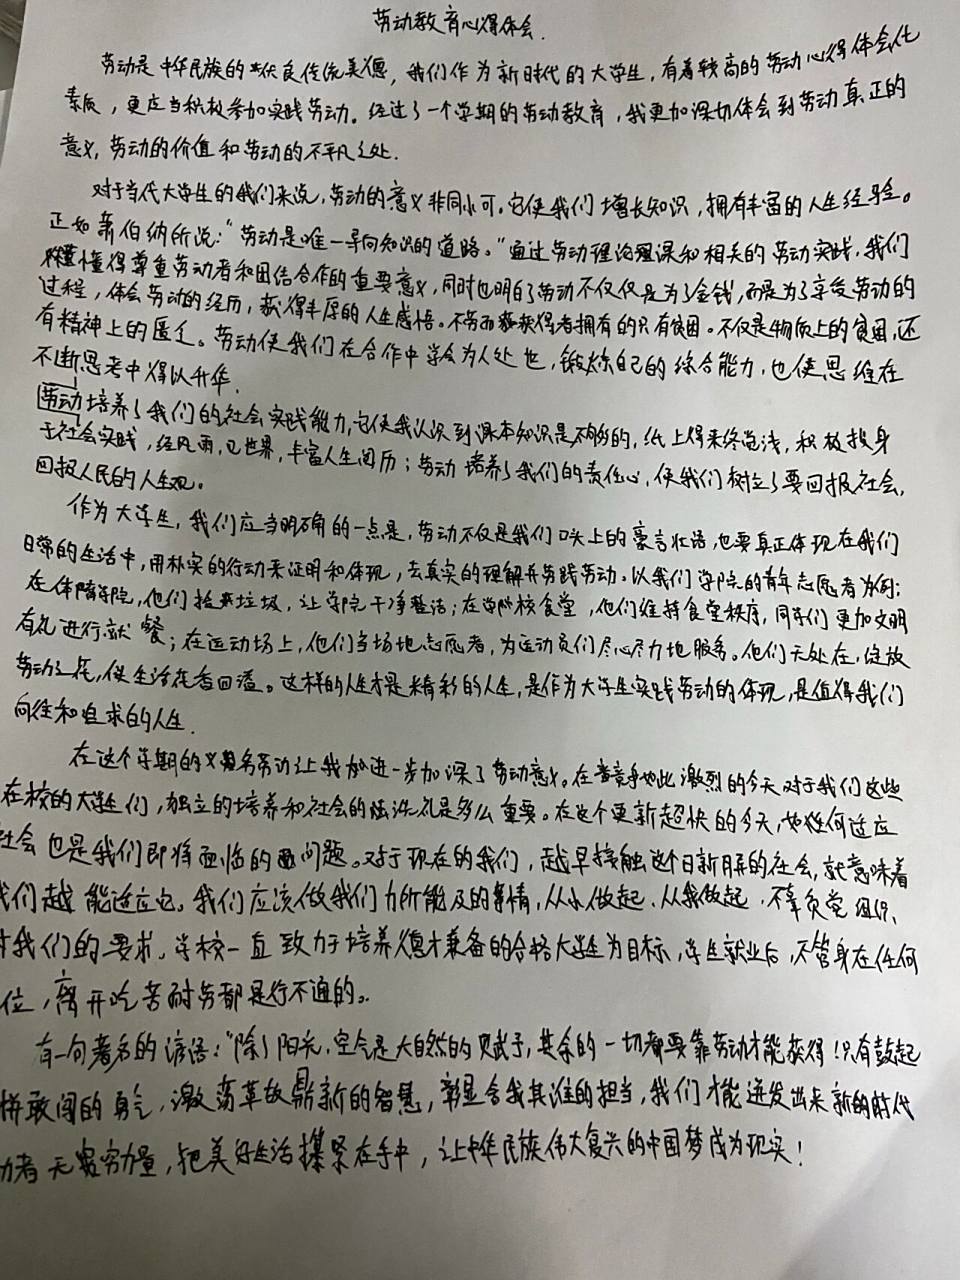 劳动教育心得体会.
劳动是中华民族的优良传统美德，我们作为新时代的大学生，有着较高的劳动心得体会化
素质，更应当积极参加实践劳动。经过了一个学期的劳动教育，我更加深切体会到劳动真正的
意义，劳动的价值和劳动的不平凡之处.
对于当代大学生的我们来说，劳动的意义非同小可。它使我们增长知识，拥有丰富的人生经验。
正如萧伯纳所说：“劳动是唯一导向知识的道路。”通过劳动理论课和相关的劳动实践，我们
懂得尊重劳动者和团结合作的重要意义，同时也明白了劳动不仅仅是为了金钱，而是为了享受劳动的
过程，体会劳动的经历，获得丰厚的人生感悟。不劳而获者拥有的只有贫困。不仅是物质上的贫困，还
有精神上的匮乏。劳动使我们在合作中学会为人处世，锻炼自己的综合能力，也使思维在
不断思考中得以升华.
劳动培养了我们的社会实践能力，它使我认识到课本知识是不够的，纸上得来终觉浅，积极投身
于社会实践，经风雨，见世界，丰富人生阅历；劳动培养了我们的责任心，使我们树立了要回报社会，
回报人民的人生观。
作为大学生，我们应当明确的一点是，劳动不仅是我们口头上的豪言壮语，也要真正体现在我们
日常的生活中，用朴实的行动来证明和体现，去真实的理解并实践劳动。以我们学院的青年志愿者为例：
在体院，他们捡垃圾，让学院干净整洁；在学校食堂，他们维持食堂秩序，同学们更加文明
有礼进行就餐；在运动场上，他们当场地志愿者，为运动员们尽心尽力地服务。他们无处在，绽放
劳动之花，使生活花香四溢。这样的人生才是精彩的人生，是作为大学生实践劳动的体现，是值得我们
向往和追求的人生.
在这个学期的义务劳动让我进一步加深了劳动意义。在竞争如此激烈的今天对于我们这些
在校的大学生们，独立的培养和社会的洗礼是多么重要。在这个更新超快的今天，如何适应
社会也是我们即将面临的问题。对于现在的我们，越早接触这个日新月异的社会，就意味着
我们越能适应它。我们应该做我们力所能及的事情，从小做起，从我做起，不辜负党组织、
对我们的要求。学校一直致力于培养德才兼备的合格大学生为目标，学生就业后，不管身在任何
位，离开吃苦耐劳都是行不通的。
有一句著名的谚语：“除了阳光，空气是大自然的赋予，其余的一切都要靠劳动才能获得！只有鼓起
拼敢闯的勇气，激荡革故鼎新的智慧，彰显舍我其谁的担当，我们才能迸发出来新的时代
动者无穷力量，把美好生活攥紧在手中，让中华民族伟大复兴的中国梦成为现实！